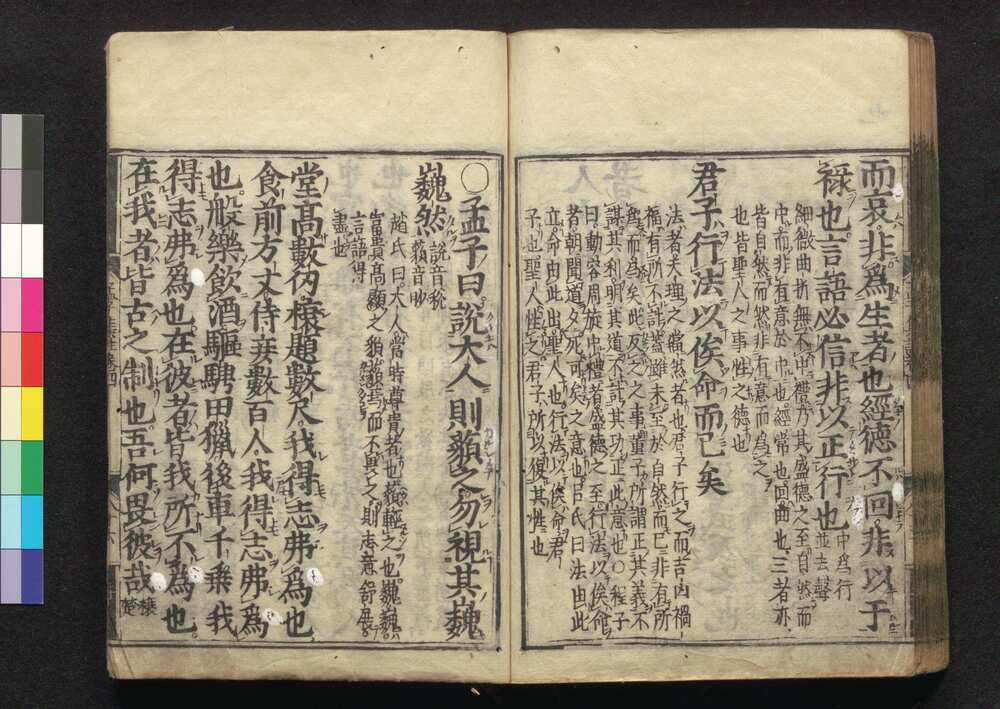 而哀非為生者也經德不回非以于
祿也言語必信非以正行也中為行
並去聲
細微曲折無不中禮乃其盛德之至自然而
中而非有意於中也經常也回曲也三者亦
皆自然而然非有意而為之
也皆聖人之事性之德也
君子行法以俟命而已矣
法者天理之當然者也君子行之而吉凶禍
福有所不計蓋雖未至於自然而已非有所
為而為矣此反之之事董子所謂正其義不
謀其利明其道不計其功正此意也○程子
曰動容周旋中禮者盛德之至行法以俟命
者朝聞道夕死可矣之意也呂氏曰法由此
立命由此出聖人也行法以俟命君
子也聖人性之君子所以復其性也
○孟子曰說大人則藐之勿視其巍
巍然說音稅
藐音眇
趙氏曰大人當時尊貴者也藐輕之也巍巍
富貴高顯之貌藐焉而不畏之則志意舒展
言語得
盡也
堂高數仞榱題數尺我得志弗為也
食前方丈侍妾數百人我得志弗為
也般樂飲酒驅騁田獵後車千乘我
得志弗為也在彼者皆我所不為也
在我者皆古之制也吾何畏彼哉榱
楚